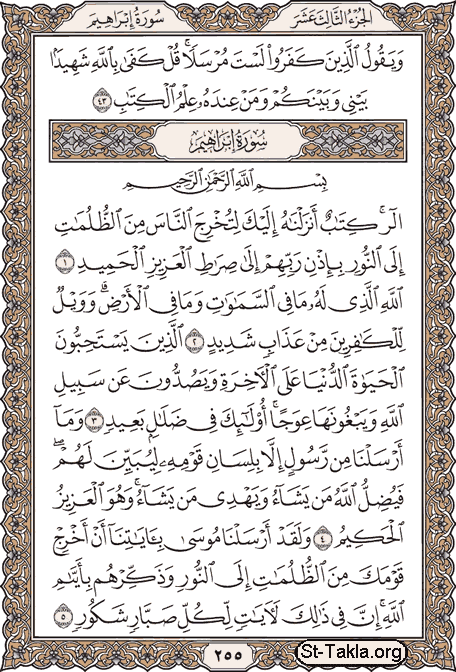 الجزء الثالث عشر سورة إبراهيم
وَيَقُولُ الَّذِينَ كَفَرُوا۟ لَسْتَ مُرْسَلًا ۚ قُلْ كَفَىٰ بِاللَّهِ شَهِيدًۢا
بَيْنِى وَبَيْنَكُمْ وَمَنْ عِندَهُۥ عِلْمُ الْكِتَٰبِ ٤٣
سورة إبراهيم
بِسْمِ اللَّهِ الرَّحْمَٰنِ الرَّحِيمِ
الٓر ۚ كِتَٰبٌ أَنزَلْنَٰهُ إِلَيْكَ لِتُخْرِجَ النَّاسَ مِنَ الظُّلُمَٰتِ
إِلَى النُّورِ بِإِذْنِ رَبِّهِمْ إِلَىٰ صِرَٰطِ الْعَزِيزِ الْحَمِيدِ ١
اللَّهِ الَّذِى لَهُۥ مَا فِى السَّمَٰوَٰتِ وَمَا فِى الْأَرْضِ ۗ وَوَيْلٌ
لِّلْكَٰفِرِينَ مِنْ عَذَابٍ شَدِيدٍ ٢ الَّذِينَ يَسْتَحِبُّونَ
الْحَيَوٰةَ الدُّنْيَا عَلَى الْءَاخِرَةِ وَيَصُدُّونَ عَن سَبِيلِ
اللَّهِ وَيَبْغُونَهَا عِوَجًا ۚ أُو۟لَٰٓئِكَ فِى ضَلَٰلٍۭ بَعِيدٍ ٣ وَمَآ
أَرْسَلْنَا مِن رَّسُولٍ إِلَّا بِلِسَانِ قَوْمِهِۦ لِيُبَيِّنَ لَهُمْ ۖ
فَيُضِلُّ اللَّهُ مَن يَشَآءُ وَيَهْدِى مَن يَشَآءُ ۚ وَهُوَ الْعَزِيزُ
الْحَكِيمُ ٤ وَلَقَدْ أَرْسَلْنَا مُوسَىٰ بِـَٔايَٰتِنَآ أَنْ أَخْرِجْ
قَوْمَكَ مِنَ الظُّلُمَٰتِ إِلَى النُّورِ وَذَكِّرْهُم بِأَيَّىٰمِ
اللَّهِ ۚ إِنَّ فِى ذَٰلِكَ لَءَايَٰتٍ لِّكُلِّ صَبَّارٍ شَكُورٍ ٥
٢٥٥
St-Takla.org